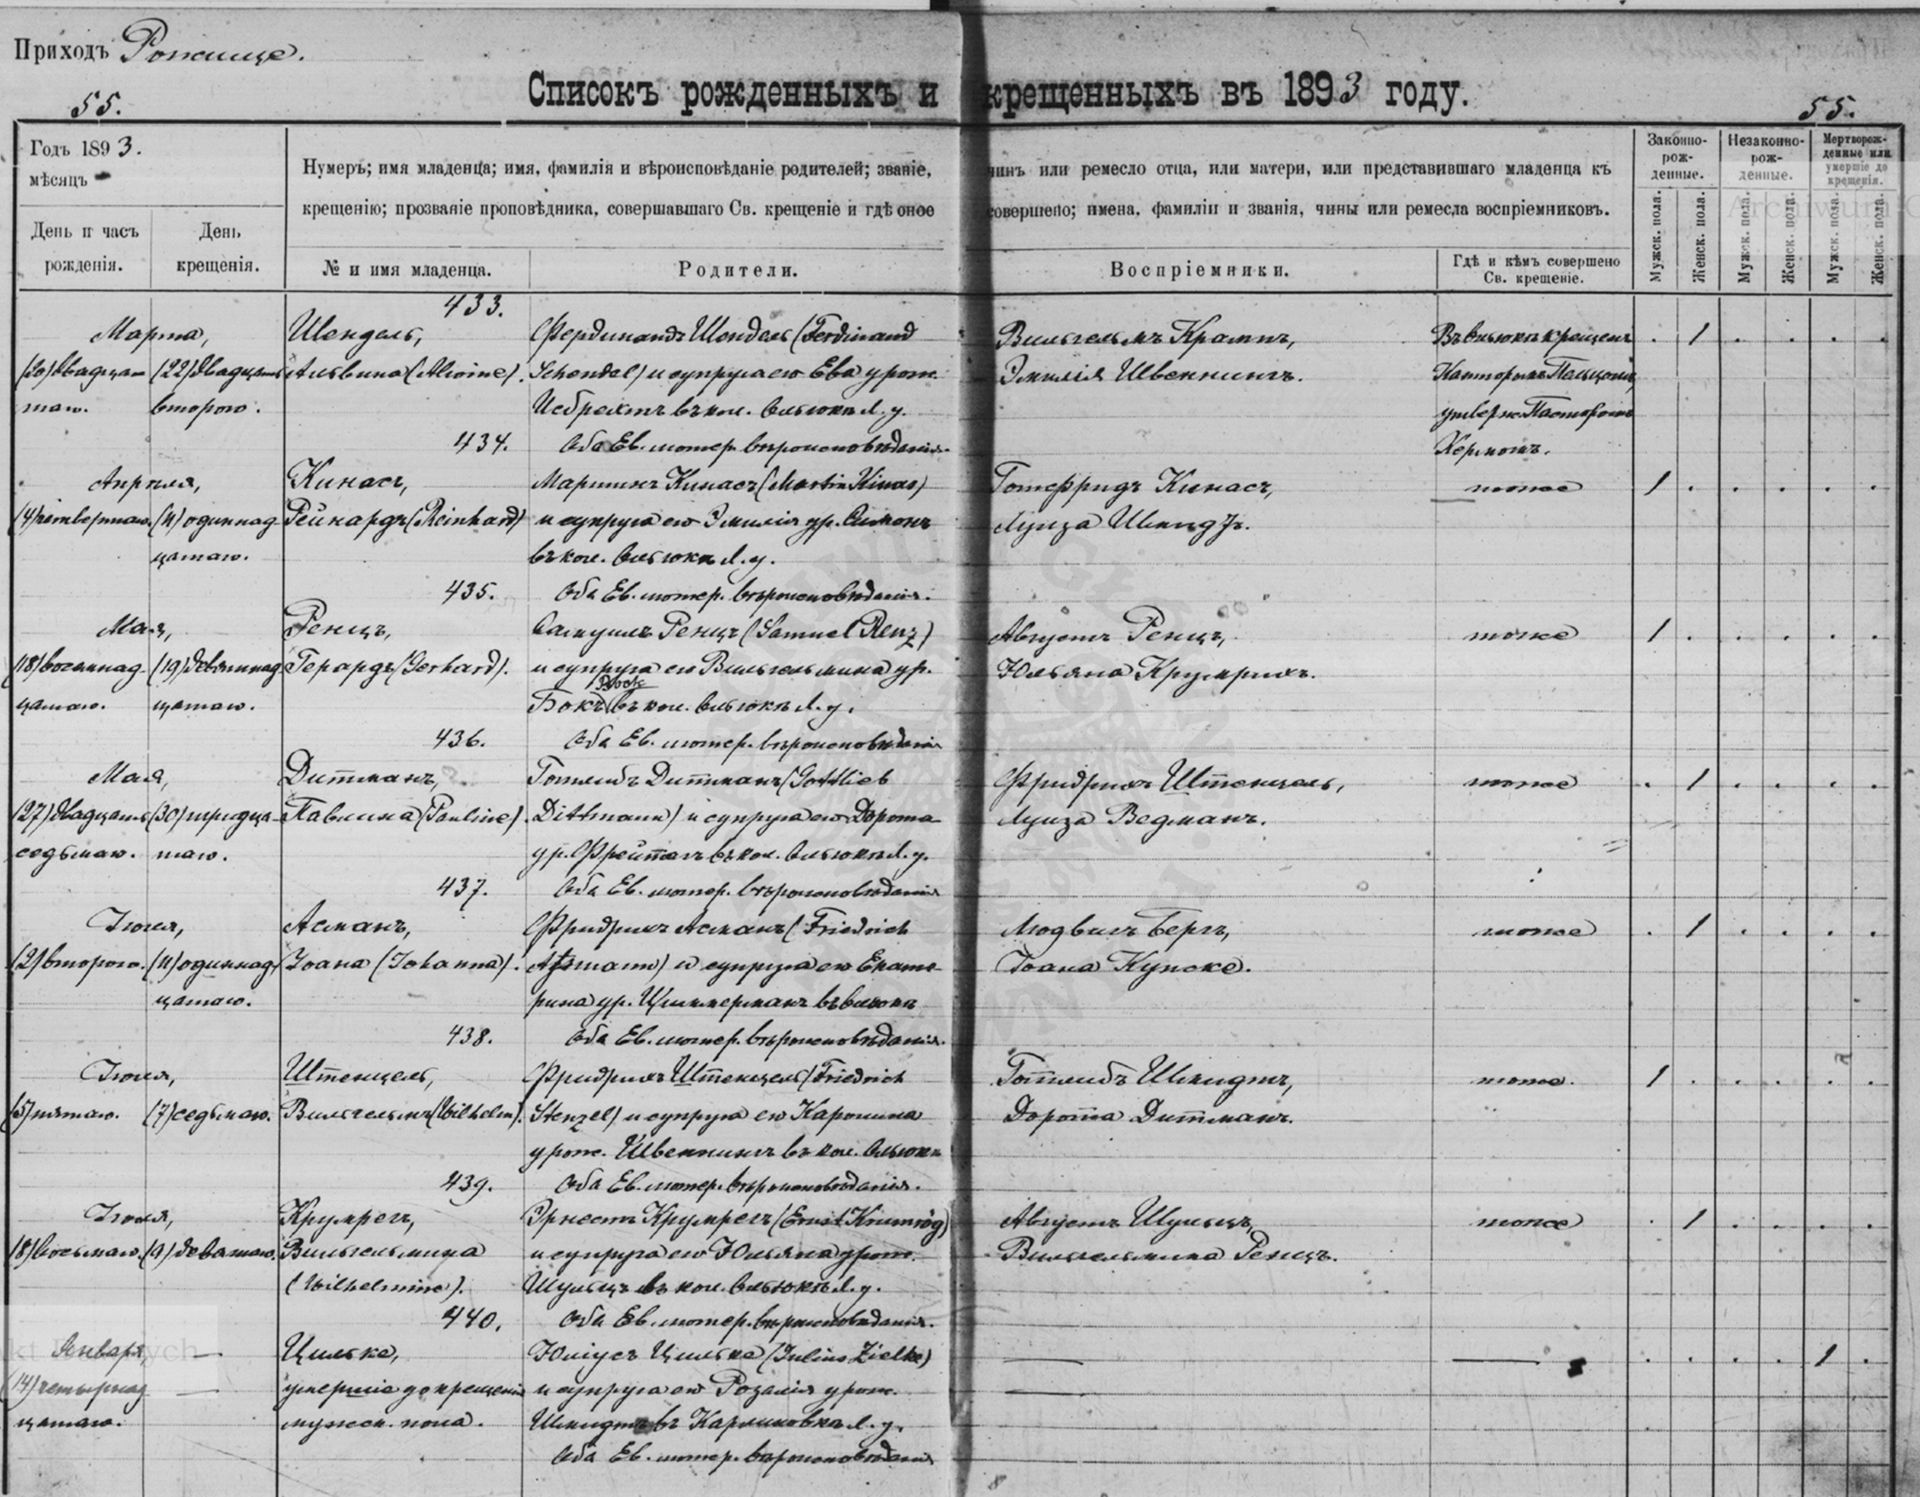 Приходъ Рожище.
55.
Списокъ рожденныхъ и крещенныхъ въ 1893 году.
55.
Годъ 1893.
мѣсяцъ
День и часъ рожденія.
День крещенія.
Нумеръ; имя младенца; имя, фамилія и вѣроисповѣданіе родителей; званіе, чинъ или ремесло отца, или матери, или представившаго младенца къ
крещенію; прозваніе проповѣдника, совершавшаго Св. крещеніе и гдѣ оное совершено; имена, фамиліи и званія, чины или ремесла воспріемниковъ.
№ и имя младенца.
Родители.
Воспріемники.
Гдѣ и кѣмъ совершено Св. крещеніе.
Законно-рож-денные.
Незаконно-рож-денные.
Мертворож-денные или умершіе до крещенія.
Мужск. пола.
Женск. пола.
Мужск. пола.
Женск. пола.
Мужск. пола.
Женск. пола.
433.
Марта, Шендель, Фердинандъ Шендель (Ferdinand Вильгельмъ Крампъ, 1
(20) двадца- (22) двадцать Альвина (Alwine). Schendel) и супруга его Ева урож. Эмилія Швеннингъ.
таго. второго. въ кол. Ольюкъ Л. у. Пасторомъ
434. Оба Ев. лютер. вѣроисповѣданія. Кермомъ.
Апрѣля, Кинасъ, Мартинъ Кинасъ (Martin Kinas) Готфридъ Кинасъ, тоже 1
(4) четвертаго. (11) одиннад- Рейнардъ (Reinhard) и супруга его Эмилія ур. Симонъ Луиза
цатаго. въ кол. Ольюкъ Л. у.
435. Оба Ев. лютер. вѣроисповѣданія.
Мая, Ренцъ, Самуилъ Ренцъ (Samuel Renz) Августъ Ренцъ, тоже 1
(18) восемнад- (19) девятнад- Герардъ (Gerhard). и супруга его Вильгельмина ур. Юльяна Крумрихъ.
цатаго. цатаго. Бокъ въ кол. Ольюкъ Л. у.
436. Оба Ев. лютер. вѣроисповѣданія
Мая, Дитманъ, Готлибъ Дитманъ (Gottlieb Фридрихъ Штенцель, тоже 1
(27) двадцать (30) тридца- Павлина (Pauline). Dittmann) и супруга его Дорота Луиза Ведманъ.
седьмаго. таго. ур. Фрейтагъ въ кол. Ольюкъ Л. у.
437. Оба Ев. лютер. вѣроисповѣданія
Іюля, Асманъ, Фридрихъ Асманъ (Friedrich Людвигъ Бергъ, тоже 1
(2) второго. (11) одиннад- Іоана (Johanna). Assmann) и супруга его Екате- Іоана Купске.
цатаго. рина ур. Циммерманъ въ Ольюкъ
438. Оба Ев. лютер. вѣроисповѣданія.
Іюля, Штенцель, Фридрихъ Штенцель (Friedrich Готлибъ Шмидтъ, тоже. 1
(5) пятаго. (7) седьмаго. Вильгельмъ (Wilhelm). Stenzel) и супруга его Каролина Дорота Дитманъ.
урож. Швеннингъ въ кол. Ольюкъ
439. Оба Ев. лютер. вѣроисповѣданія.
Іюля, Крумрегъ, Эрнестъ Крумрегъ (Ernst Krumräg) Августъ Шульцъ, тоже 1
(8) восьмаго. (9) девятаго. Вильгельмина и супруга его Юльяна урож. Вильгельмина Ренцъ.
(Wilhelmine). Шульцъ въ кол. Ольюкъ Л. у.
440. Оба Ев. лютер. вѣроисповѣданія.
Января, Цильке, Юліусъ Цильке (Julius Zielke) 1
(14) четырнад- умершіе до крещенія и супруга его Розалія урож.
цатаго. мужск. пола. Шмидтъ въ Карлиновка Л. у.
Оба Ев. лютер. вѣроисповѣданія